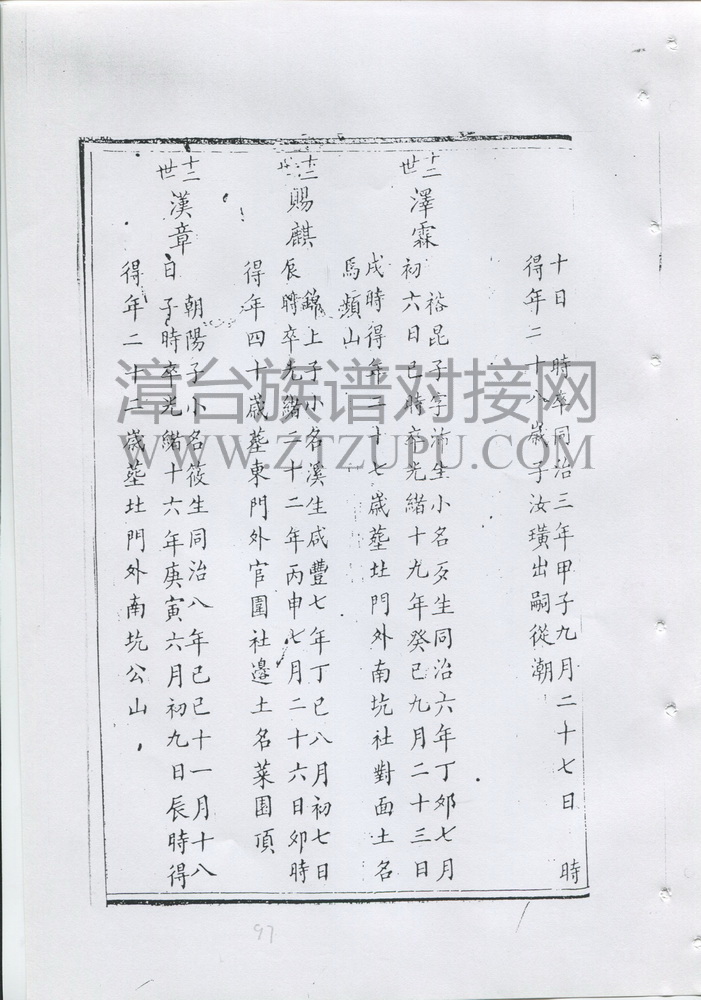 十日　時卒同治三年甲子九月二十七日　時
得年二十八歲子汝璜出嗣從潮
十二世
澤霖
裕昆子字沛生小名歹生同治六年丁卯七月
初六日巳時卒光緒十九年癸巳九月二十三日
戌時得年二十七歲塟北門外南坑社對面土名
馬頻山
十二世
賜麒
錦上子小名溪生咸豐七年丁巳八月初七日
辰時卒光緒二十二年丙申七月二十六日卯時
得年四十歲塟東門外官園社邊土名菜園頂
十二世
漢章
朝陽子小名筱生同治八年己巳十一月十八
日子時卒光緒十六年庚寅六月初九日辰時得
得年二十二歲塟北門外南坑公山
漳台族谱对接网
WWW.ZTZUPU.COM
97